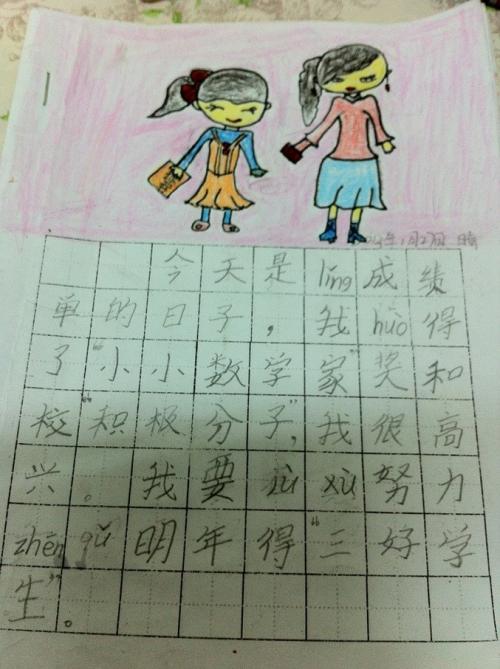 今天是lǐng成绩
单的日子，我huò得
了“小小数学家”奖和
校“积极分子”，我很高
兴。我要jì xù努力
zhēng qǔ明年得“三好学
生”。